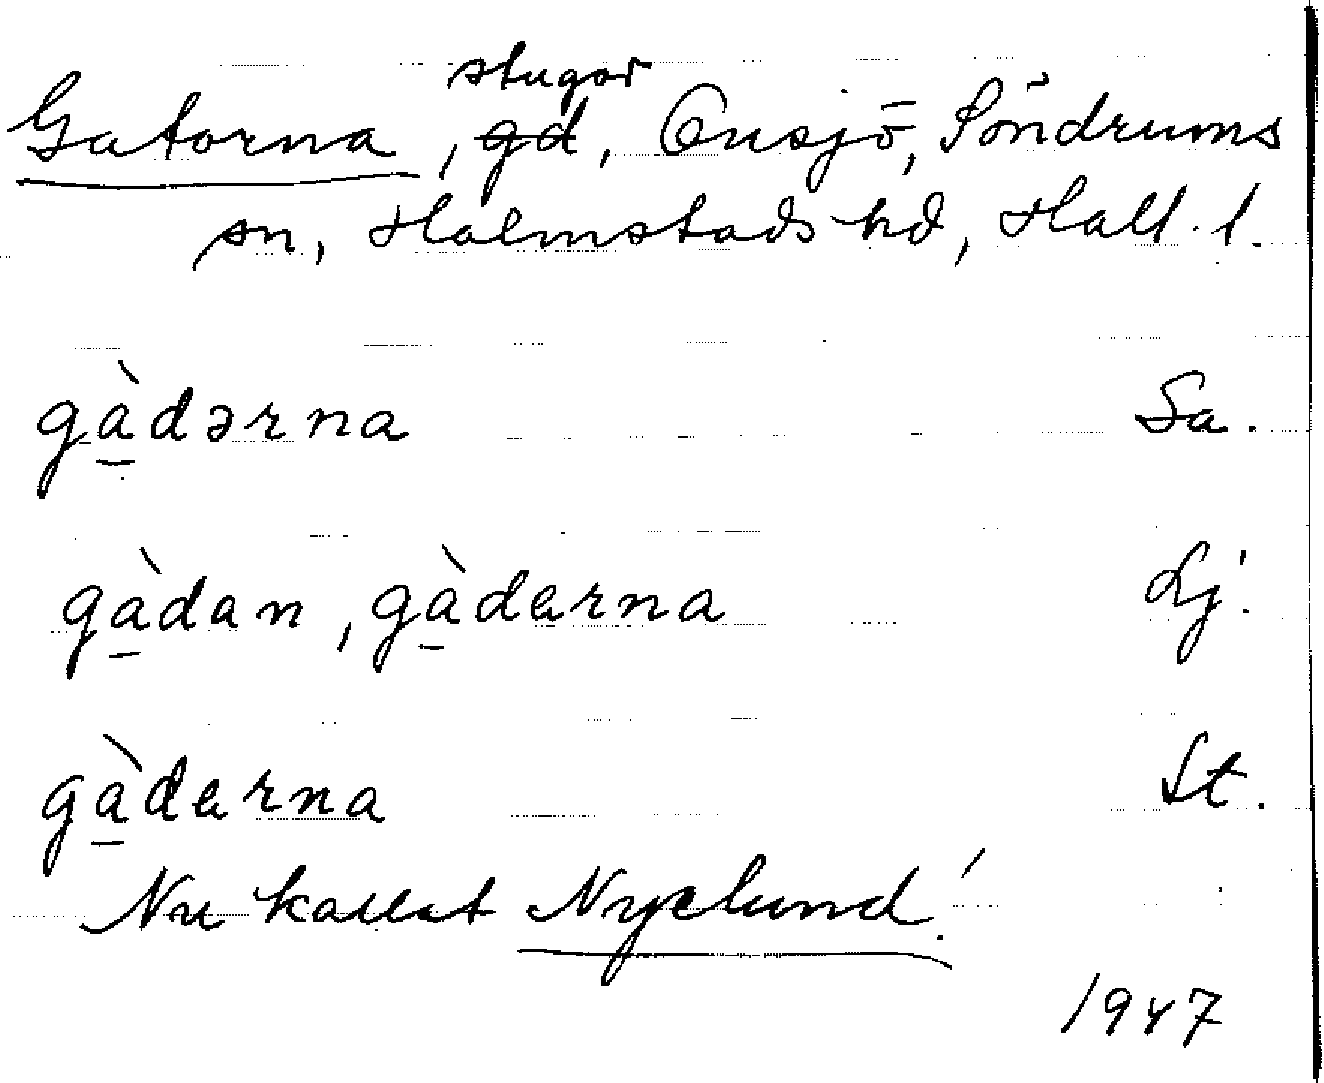 Gatorna, stugor gd, Onsjö, Söndrums
sn, Halmstads hd, Hall. l.
gàdərna Sa.
gàdan, gàdarna Lj.
gàdarna St.
Nu kallat Nyelund!
1947